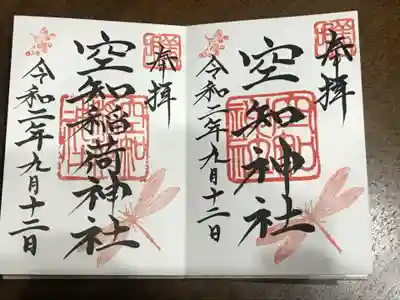 奉拝
空知神社
令和二年九月十二日
奉拝
空知稲荷神社
令和二年九月十二日